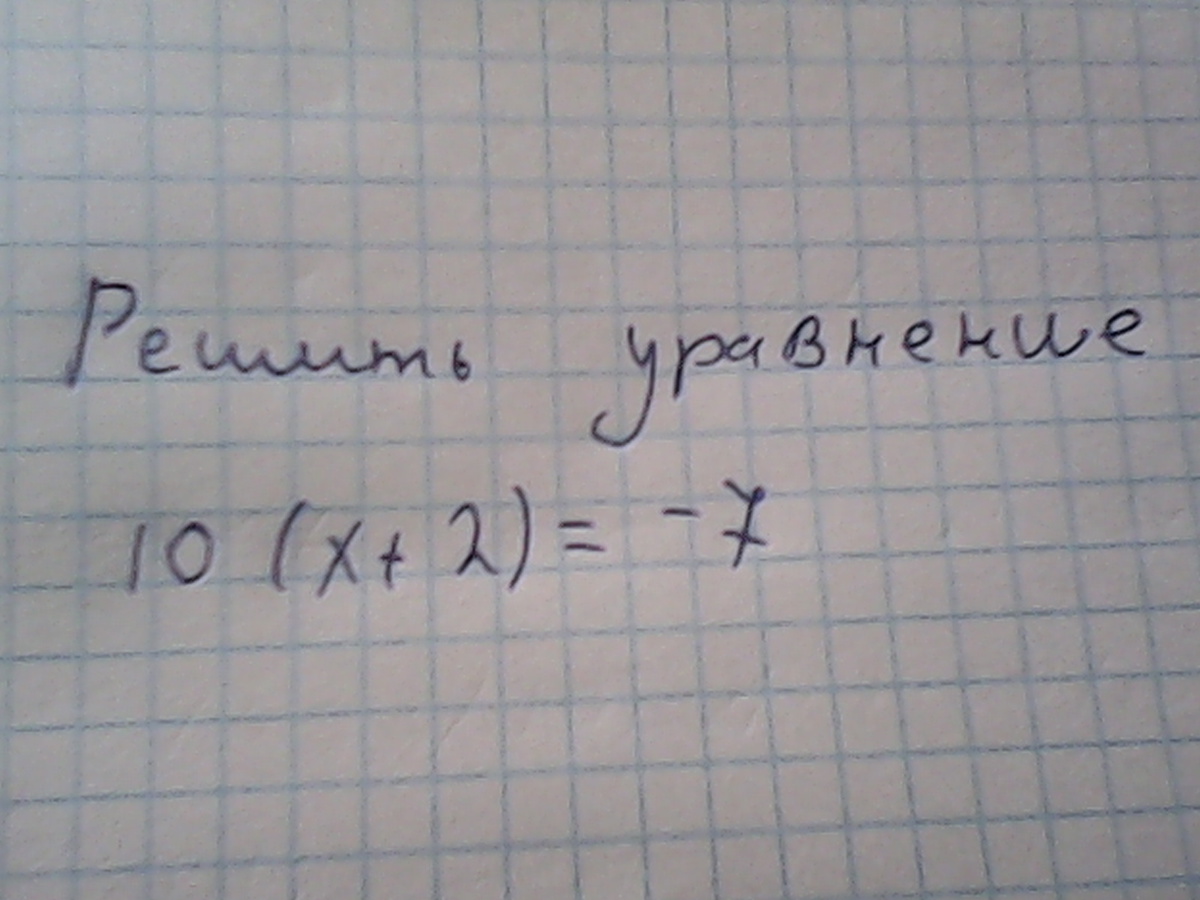 Решить уравнение
10 (x+ 2) = -7